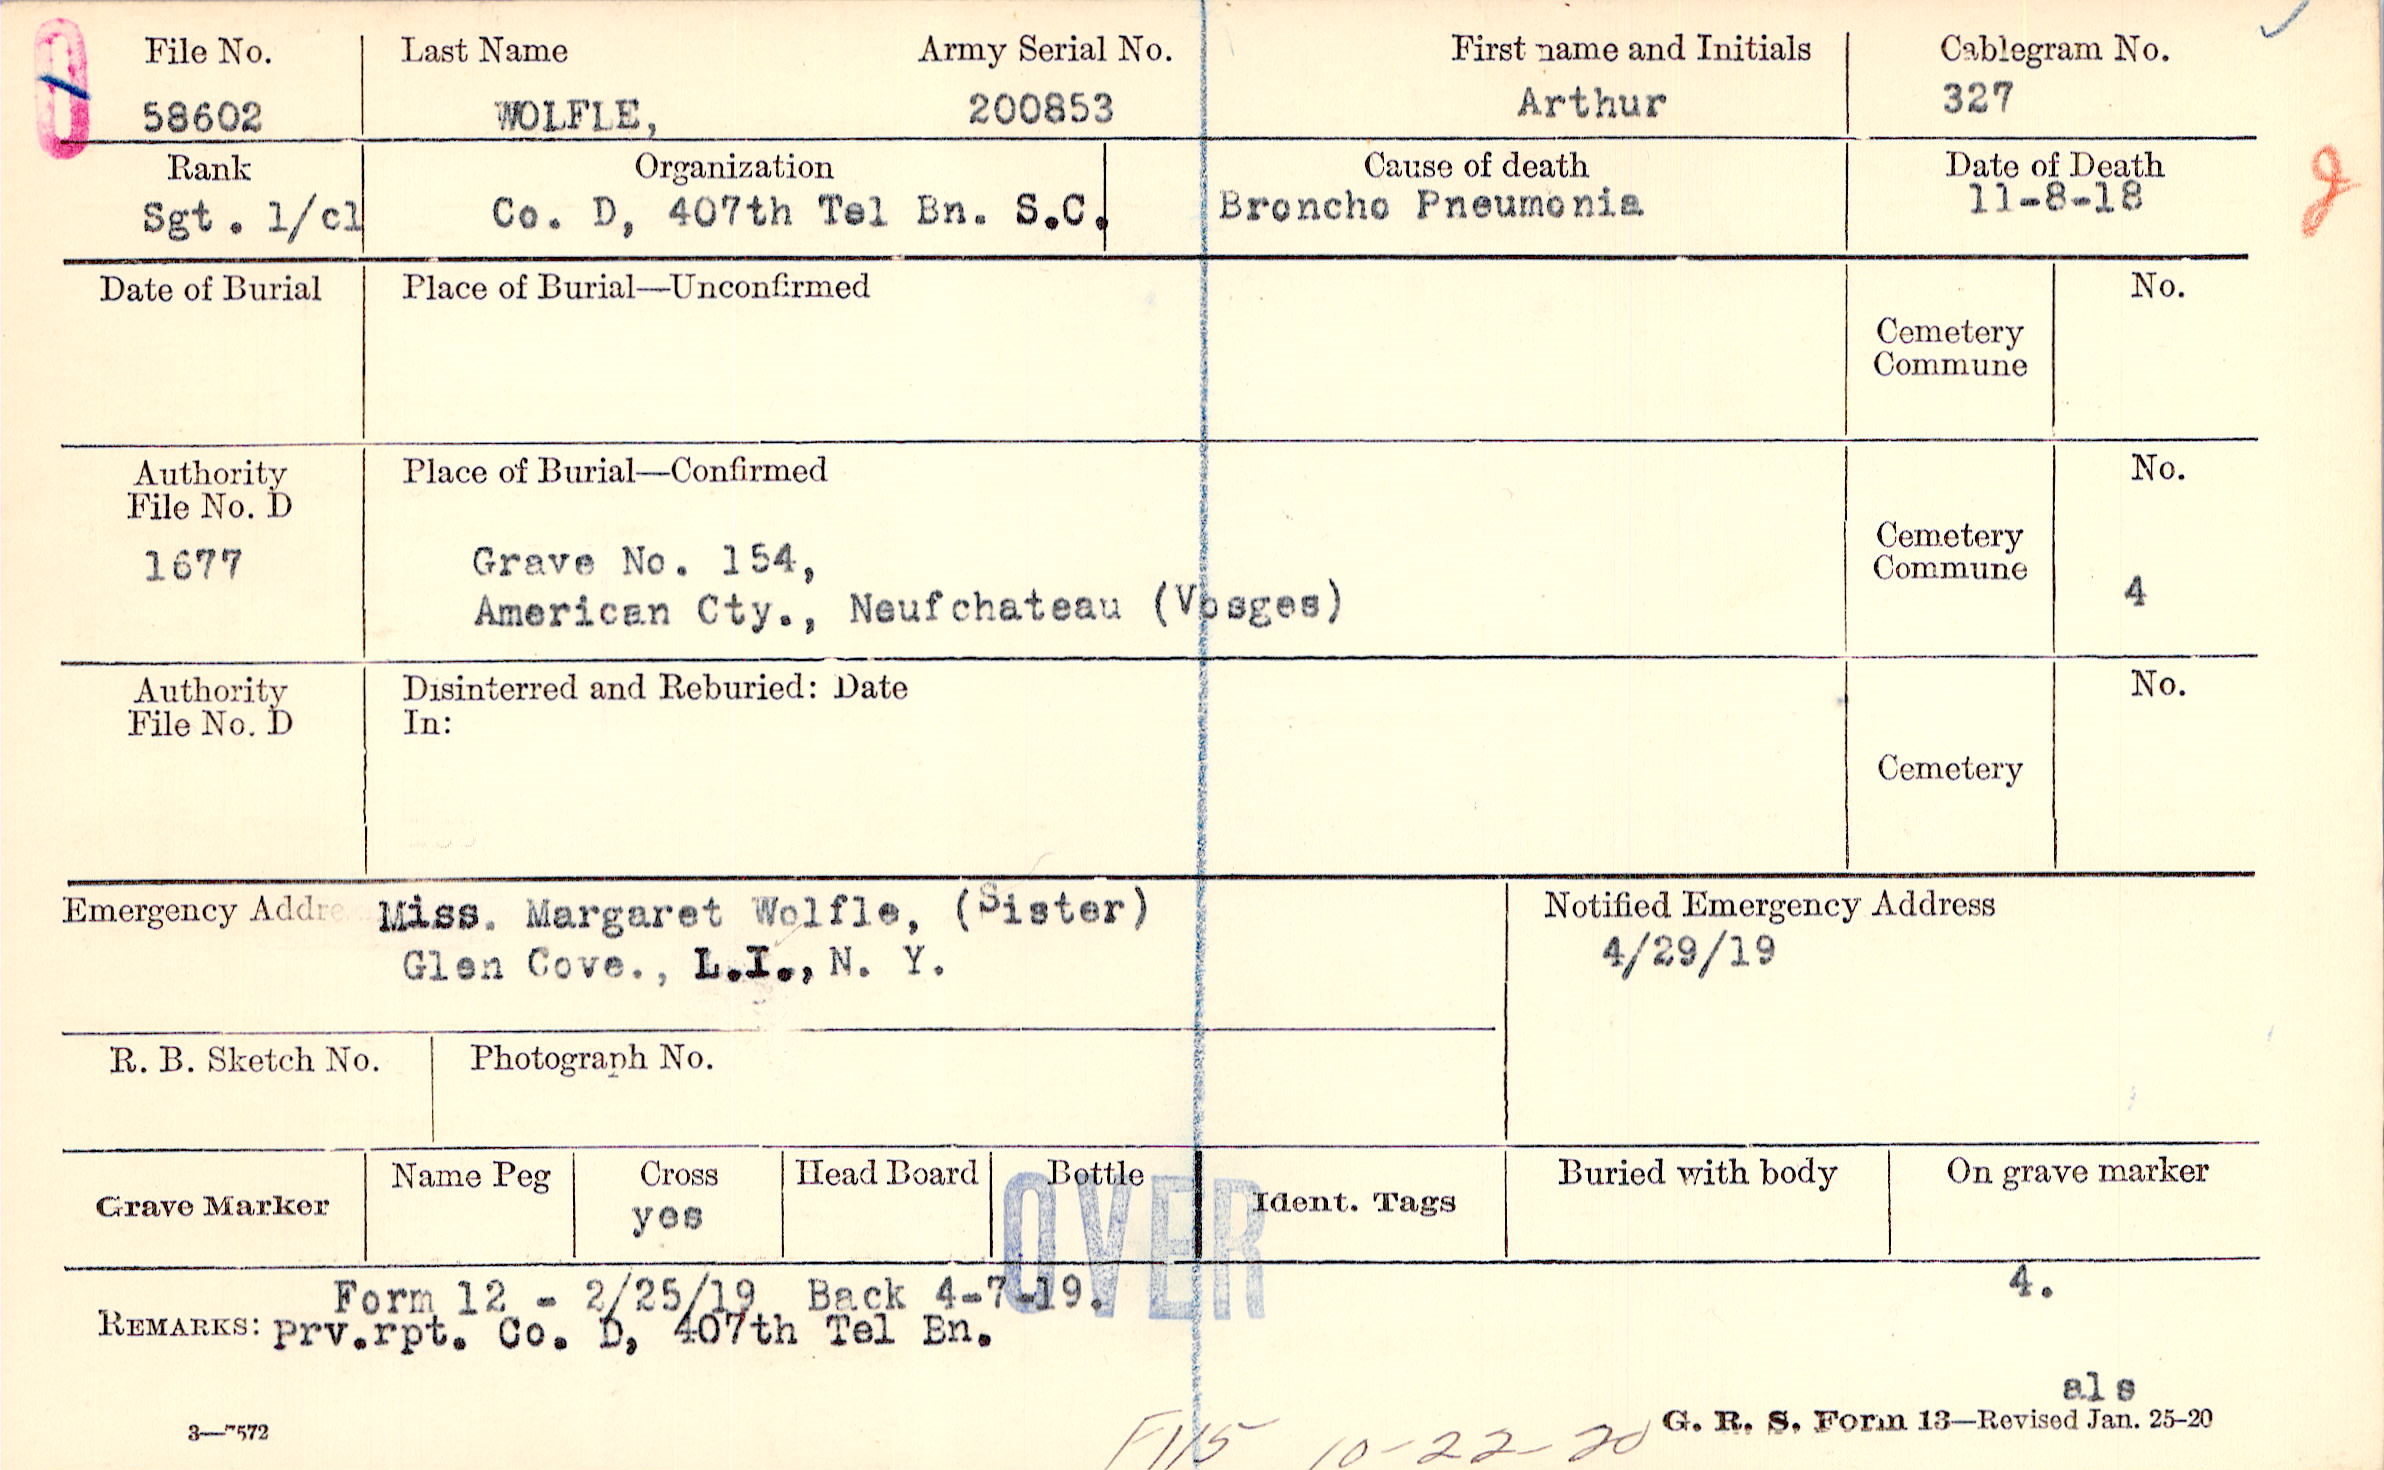 File No. Last Name Army Serial No. First name and Initials Cablegram No.
58602 WOLFLE, 200853 Arthur 327
Rank Organization Cause of death Date of Death
Sgt. 1/cl Co. D, 407th Tel Bn. S.C. Broncho Pneumonia 11-8-18
Date of Burial Place of Burial—Unconfirmed No.
Cemetery
Commune
Authority Place of Burial—Confirmed No.
File No. D
Cemetery
1677 Grave No. 154, Commune
American Cty., Neufchateau (Vosges) 4
Authority Disinterred and Reburied: Date No.
File No. D In:
Cemetery
Emergency Addre Miss. Margaret Wolfle, (Sister) Notified Emergency Address
Glen Cove., L.I., N. Y. 4/29/19
R. B. Sketch No. Photograph No.
Name Peg Cross Head Board Bottle Buried with body On grave marker
Grave Marker yes Ident. Tags
OVER
Form 12 - 2/25/19 Back 4-7-19. 4.
REMARKS: Prv.rpt. Co. D, 407th Tel Bn.
als
3—7572 G. R. S. Form 13—Revised Jan. 25-20
10-22-20